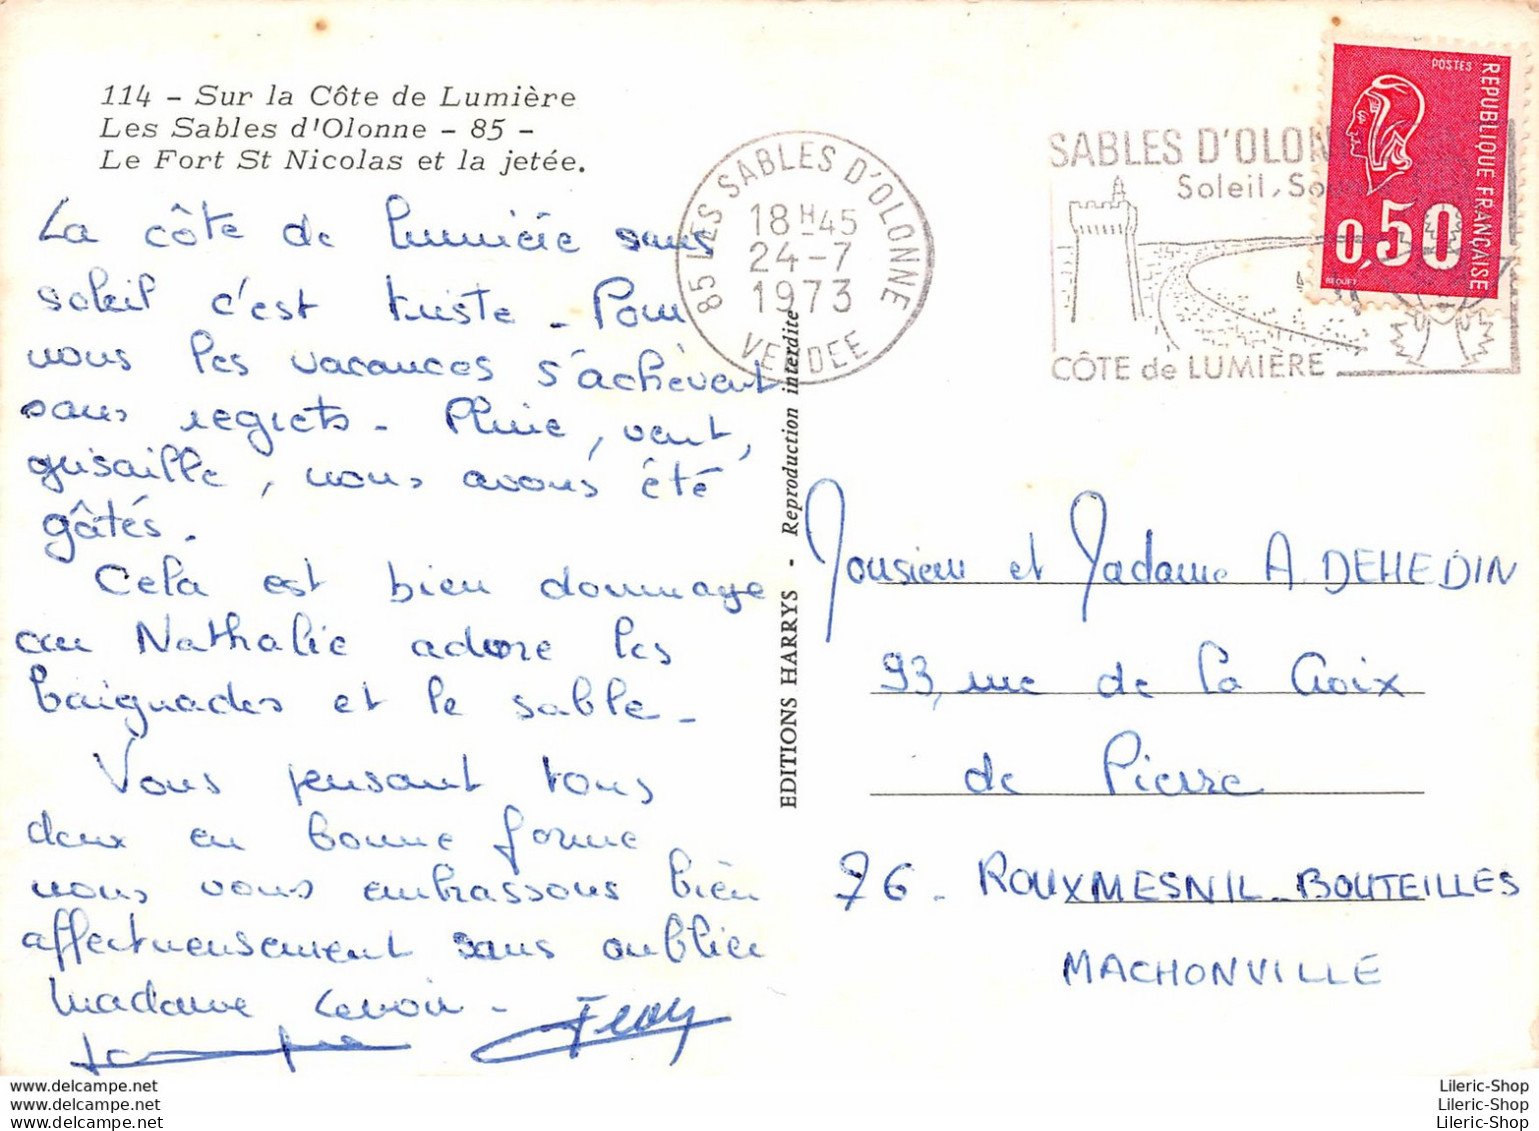 114 - Sur la Côte de Lumière
Les Sables d'Olonne - 85 -
Le Fort St Nicolas et la jetée.
La côte de lumière sans
soleil c'est triste - Pour
nous les vacances s'achèvent
sans regrets - Pluie, vent,
grisaille, nous avons été
gâtés.
Cela est bien dommage
car Nathalie adore les
baignades et le sable -
Vous pensant tous
deux en bonne forme
nous vous embrassons bien
affectueusement sans oublier
Madame Lenoir -
85 LES SABLES D'OLONNE
18H45
24-7
1973
VENDEE
SABLES D'OLON
Soleil, So
CÔTE de LUMIÈRE
POSTES
REPUBLIQUE FRANÇAISE
0,50
BEQUET
EDITIONS HARRYS - Reproduction interdite
Monsieur et Madame A DEHEDIN
93, rue de la Croix
de Pierre
76 - ROUXMESNIL-BOUTEILLES
MACHONVILLE
www.delcampe.net
www.delcampe.net
www.delcampe.net
Lileric-Shop
Lileric-Shop
Lileric-Shop